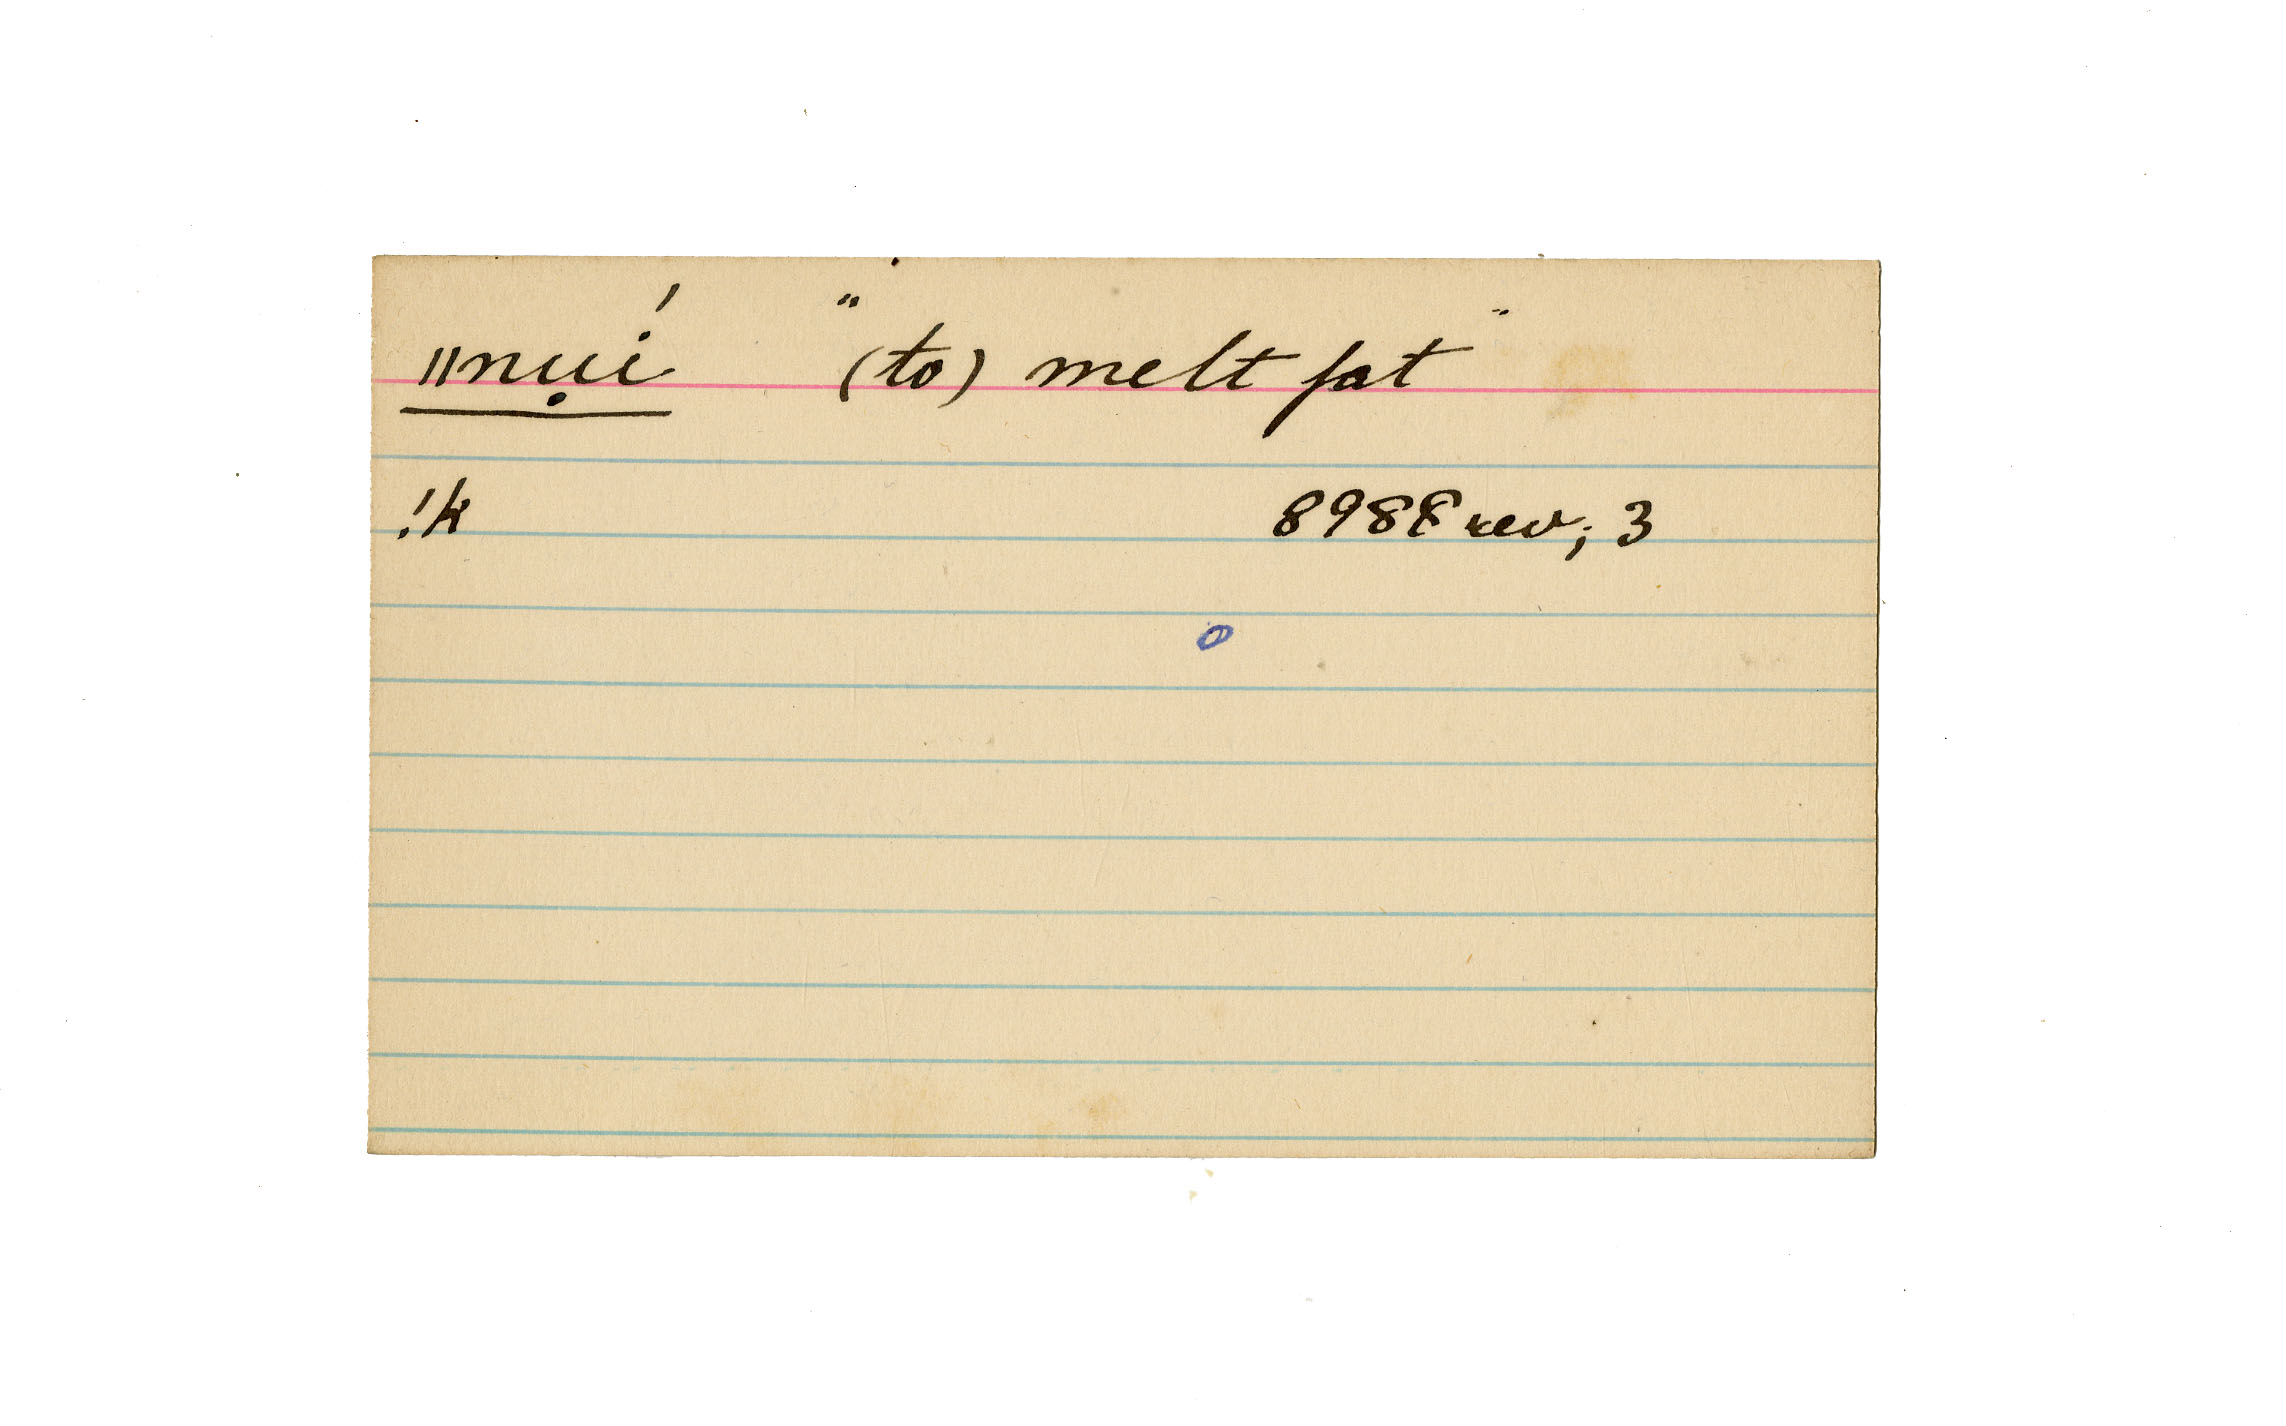 ǁnụí "(to) melt fat"
!k 8988 rev; 3